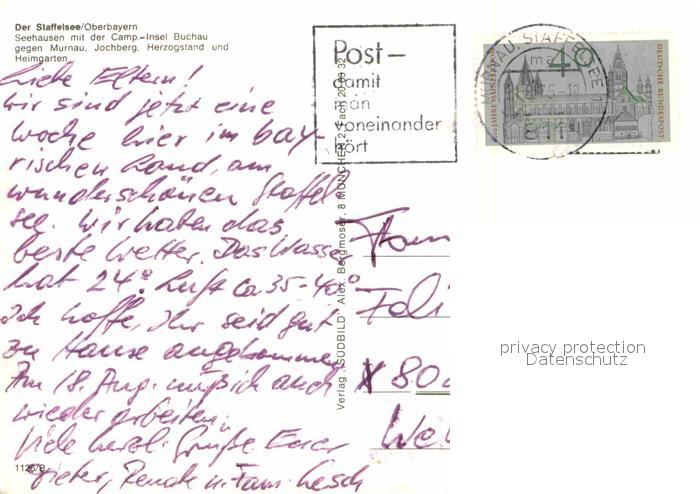 Der Staffelsee/Oberbayern
Seehausen mit der Camp.-Insel Buchau
gegen Murnau, Jochberg, Herzogstand und
Heimgarten
Liebe Eltern!
wir sind jetzt eine
Woche hier im bay-
rischen Land, am
wunderschönen Staffel
see. Wir haben das
beste Wetter. Das Wasser
hat 24° Luft ca 35-40°
Ich hoffe, Ihr seid gut
zu Hause angekommen
Am 18. Aug. muß ich auch
wieder arbeiten.
Viele herzl. Grüße Euer
Dieter, Renate u. Fam. Lesch
1125/B
Verlag „SÜDBILD" Alex. Bergmoser, 8 MÜNCHEN 2, Fach 20 09 32
Post–
damit
man
voneinander
hört
MURNAU, STAFFELSEE
811
40
DEUTSCHE BUNDESPOST
Fam
Feli
X 80
We
privacy protection
Datenschutz